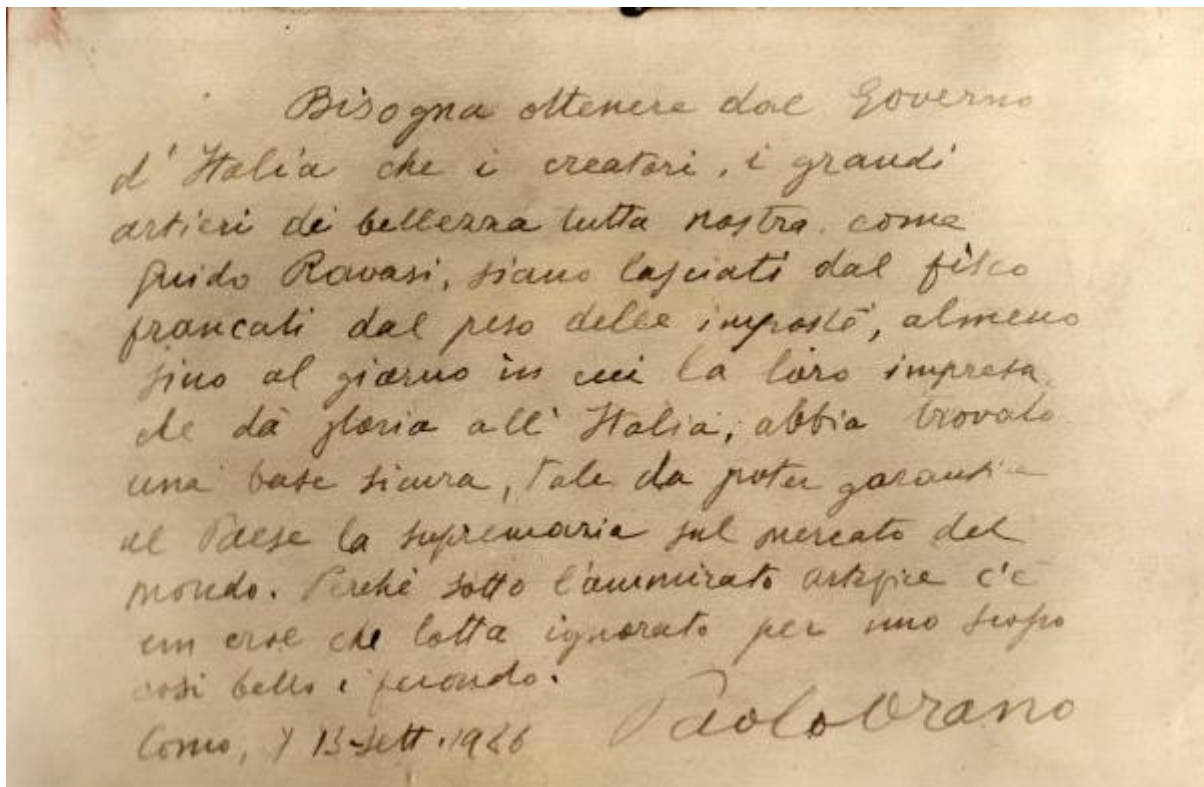 Bisogna ottenere dal Governo
d'Italia che i creatori, i grandi
artieri di bellezza tutta nostra, come
Guido Ravasi, siano lasciati dal fisco
francati dal peso delle imposte, almeno
sino al giorno in cui la loro impresa,
che dà gloria all'Italia, abbia trovato
una base sicura, tale da poter garantire
al Paese la supremazia sul mercato del
mondo. Perchè sotto l'ammirato artefice c'è
un eroe che lotta ignorato per uno scopo
così bello e fecondo.
Como, 13-Sett. 1926 Paolo Orano